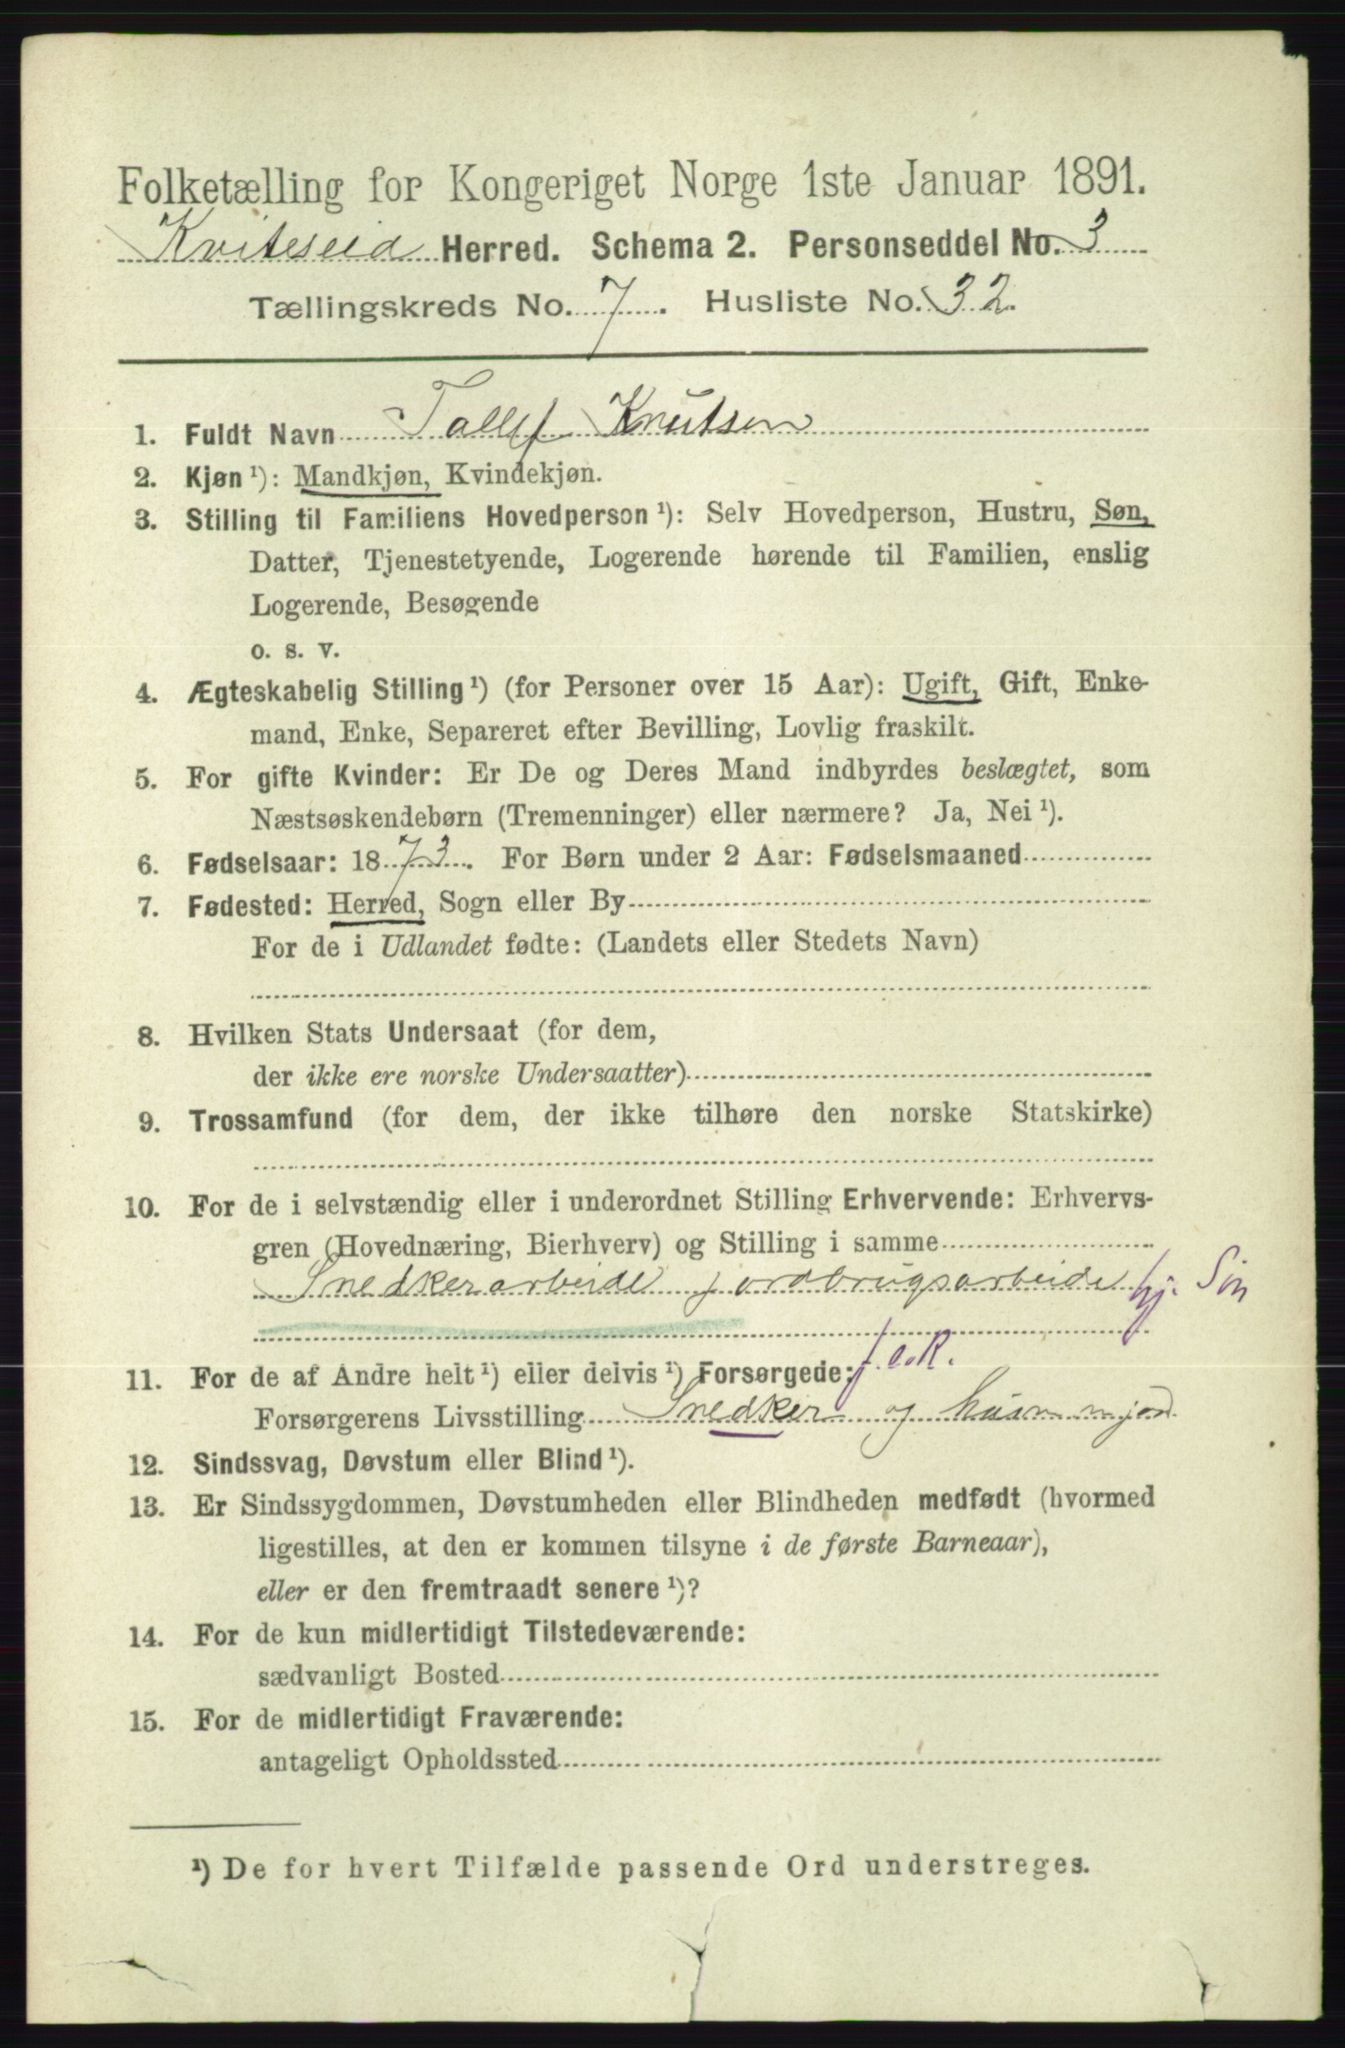 Folketælling for Kongeriget Norge 1ste Januar 1891.
Kviteseid Herred. Schema 2. Personseddel No. 3
Tællingskreds No. 7. Husliste No. 32.
1. Fuldt Navn Tallef Knutsen
2. Kjøn ¹): Mandkjøn, Kvindekjøn.
3. Stilling til Familiens Hovedperson ¹): Selv Hovedperson, Hustru, Søn,
Datter, Tjenestetyende, Logerende hørende til Familien, enslig
Logerende, Besøgende
o. s. v.
4. Ægteskabelig Stilling ¹) (for Personer over 15 Aar): Ugift, Gift, Enke-
mand, Enke, Separeret efter Bevilling, Lovlig fraskilt.
5. For gifte Kvinder: Er De og Deres Mand indbyrdes beslægtet, som
Næstsøskendebørn (Tremenninger) eller nærmere? Ja, Nei ¹).
6. Fødselsaar: 1873. For Børn under 2 Aar: Fødselsmaaned
7. Fødested: Herred, Sogn eller By
For de i Udlandet fødte: (Landets eller Stedets Navn)
8. Hvilken Stats Undersaat (for dem,
der ikke ere norske Undersaatter)
9. Trossamfund (for dem, der ikke tilhøre den norske Statskirke)
10. For de i selvstændig eller i underordnet Stilling Erhvervende: Erhvervs-
gren (Hovednæring, Bierhverv) og Stilling i samme
Snedkerarbeide jordbrugsarbeide hj. Søn
11. For de af Andre helt ¹) eller delvis ¹) Forsørgede: f.o.R.
Forsørgerens Livsstilling Snedker og husm m jord
12. Sindssvag, Døvstum eller Blind ¹).
13. Er Sindssygdommen, Døvstumheden eller Blindheden medfødt (hvormed
ligestilles, at den er kommen tilsyne i de første Barneaar),
eller er den fremtraadt senere ¹)?
14. For de kun midlertidigt Tilstedeværende:
sædvanligt Bosted
15. For de midlertidigt Fraværende:
antageligt Opholdssted
¹) De for hvert Tilfælde passende Ord understreges.